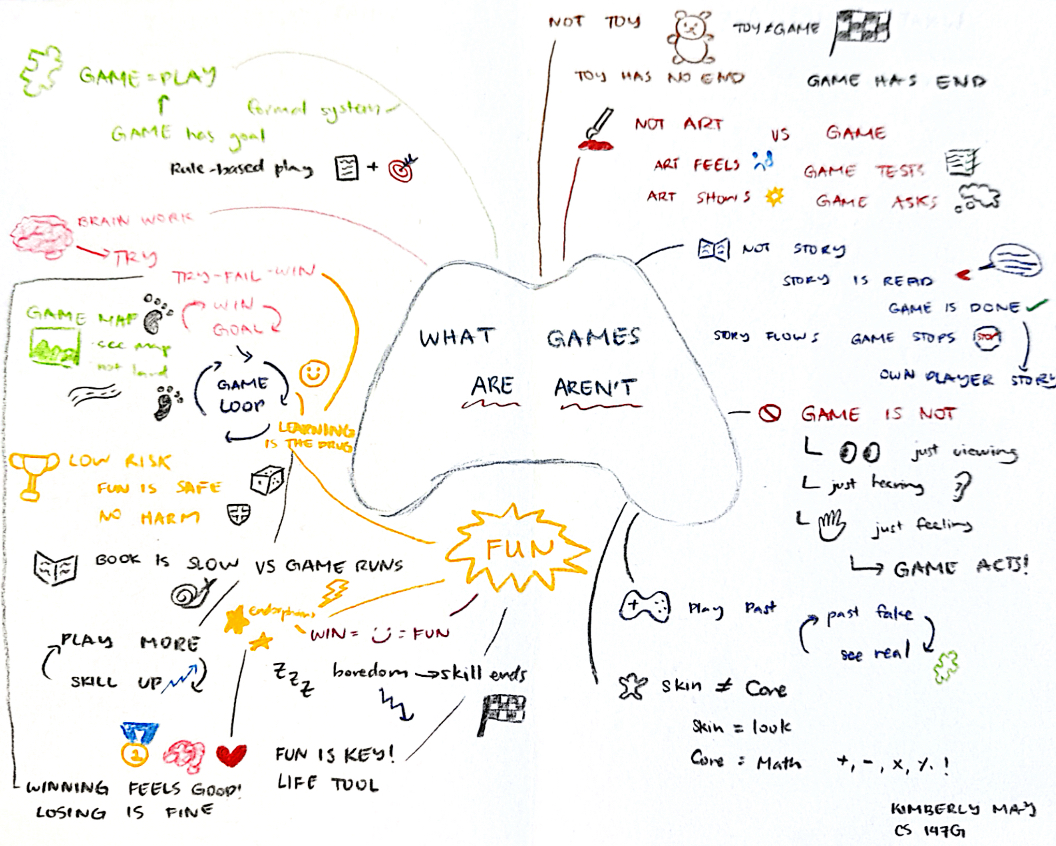 WHAT GAMES
ARE AREN'T
GAME = PLAY
formal system
GAME has goal
Rule-based play +
BRAIN WORK
TRY
TRY-FAIL-WIN
WIN
GOAL
GAME MAP
see map
not land
GAME
LOOP
LEARNING
IS THE DRUG
LOW RISK
FUN IS SAFE
NO HARM
FUN
BOOK IS SLOW VS GAME RUNS
Endorphins
WIN = = FUN
PLAY MORE
SKILL UP
Z Z Z
boredom → skill ends
FUN IS KEY!
LIFE TOOL
WINNING FEELS GOOD!
LOSING IS FINE
NOT TOY
TOY ≠ GAME
TOY HAS NO END
GAME HAS END
NOT ART VS GAME
ART FEELS
GAME TESTS
ART SHOWS
GAME ASKS
NOT STORY
STORY IS READ
GAME IS DONE ✓
STORY FLOWS GAME STOPS STOP
OWN PLAYER STORY
GAME IS NOT
just viewing
just hearing
just feeling
GAME ACTS!
Play Past
past fake
see real
Skin ≠ Core
Skin = look
Core = Math +, -, x, %. !
KIMBERLY MAY
CS 147G